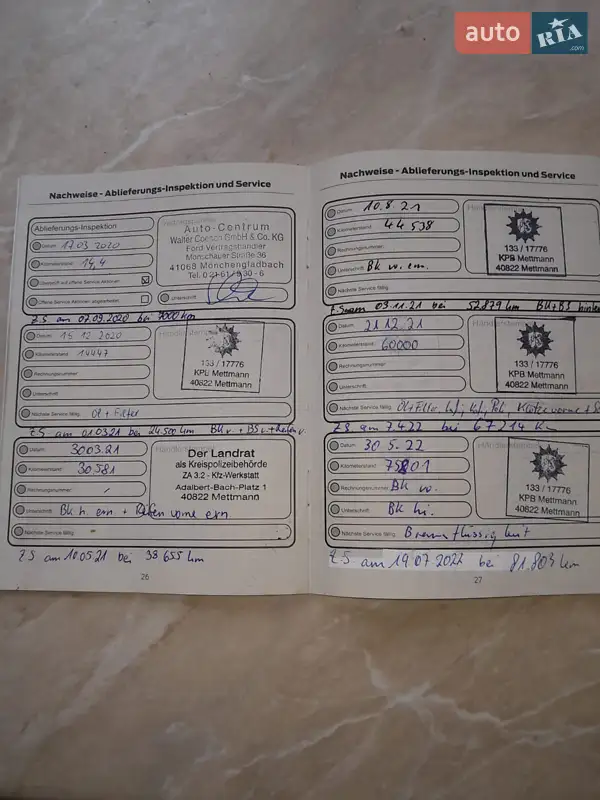 auto RIA .com
Nachweise - Ablieferungs-Inspektion und Service
Ablieferungs-Inspektion
Datum 17.03 2020
Kilometerstand 14,4
Durchsicht auf offene Service Aktionen
Offene Service Aktionen abgearbeitet
Unterschrift
Auto-Centrum
Walter Coenen GmbH & Co. KG
Ford Vertragshändler
Monschauer Straße 36
41068 Mönchengladbach
Z.S am 07.09.2020 bei 7000 km
Datum 15.12.2020
Kilometerstand 14447
Rechnungsnummer
Unterschrift
Nächste Service fällig Öl + Filter
133 / 17776
KPB Mettmann
40822 Mettmann
Z.S am 01.03.21 bei 24.500 km
Datum 30.03.21
Kilometerstand 30.581
Rechnungsnummer
Unterschrift Bk h. ern. + Reifen vorne ern
Nächste Service fällig
Der Landrat
als Kreispolizeibehörde
ZA 3.2 - Kfz-Werkstatt
Adalbert-Bach-Platz 1
40822 Mettmann
Z.S am 10.05.21 bei 38 655 km
26
Nachweise - Ablieferungs-Inspektion und Service
Datum 10.8.21
Kilometerstand 44 538
Rechnungsnummer
Unterschrift Bk v. ern.
Nächste Service fällig
133 / 17776
KPB Mettmann
40822 Mettmann
03.11.21 bei 52.879 km
Datum 21.12.21
Kilometerstand 60000
Rechnungsnummer
Unterschrift
Nächste Service fällig
133 / 17776
KPB Mettmann
40822 Mettmann
Z.S. am 7.4.22 bei 67 214 km
Datum 30.5.22
Kilometerstand
Rechnungsnummer Bk vo.
Unterschrift Bk hi.
Nächste Service fällig
133 / 17776
KPB Mettmann
40822 Mettmann
Z.S am 19.07.2022 bei 81.803 km
27